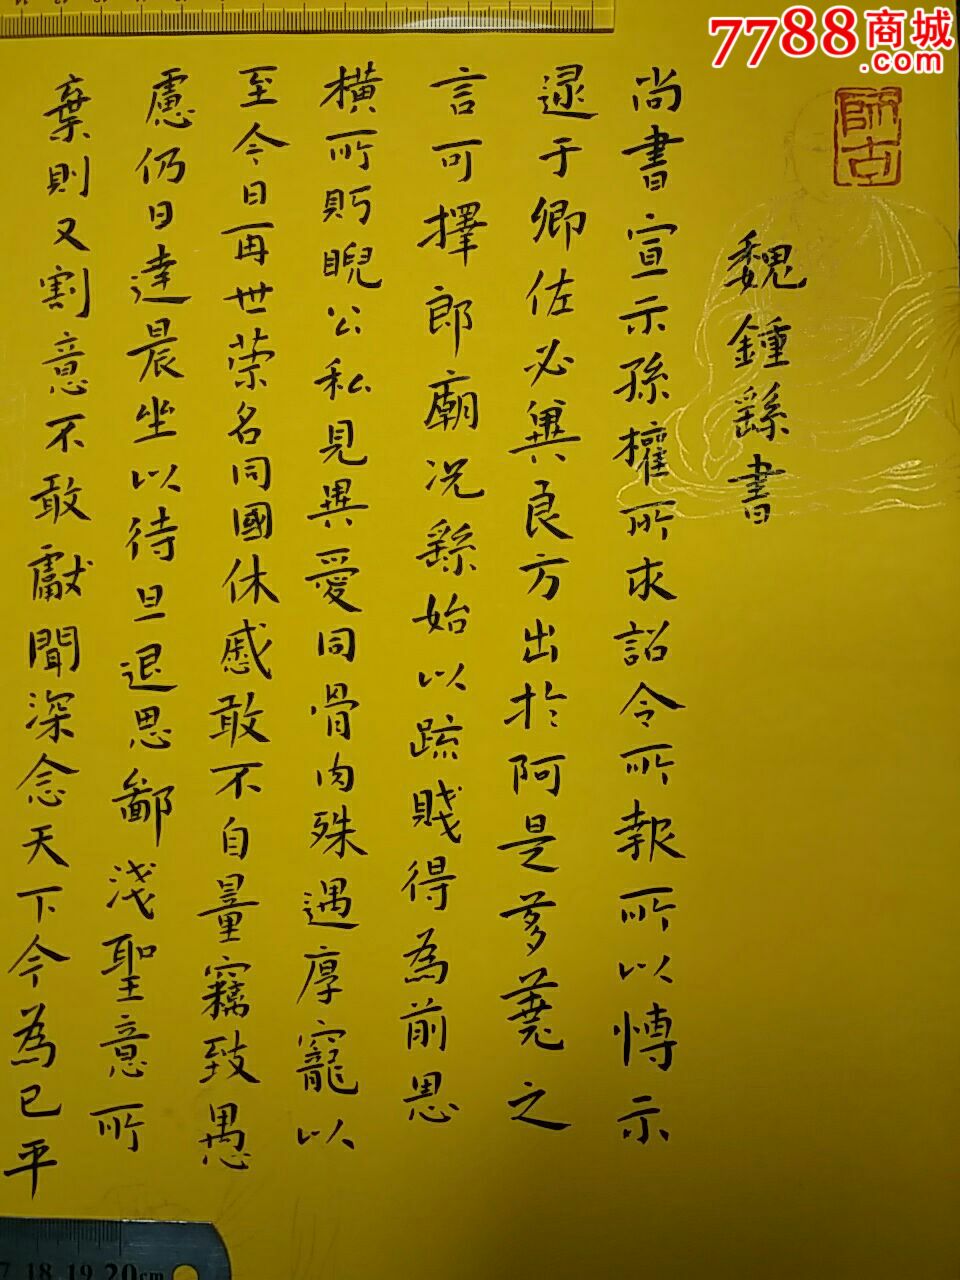 7788商城
.com
師古
魏鍾繇書
尚書宣示孫權所求詔令所報所以博示
逯于卿佐必與良方出於阿是芻蕘之
言可擇郎廟況繇始以疏賤得為前恩
橫所眄睨公私見異愛同骨肉殊遇厚寵以
至今日再世榮名同國休慼敢不自量竊致愚
慮仍日達晨坐以待旦退思鄙淺聖意所
棄則又割意不敢獻聞深念天下今為已平
18 19 20cm